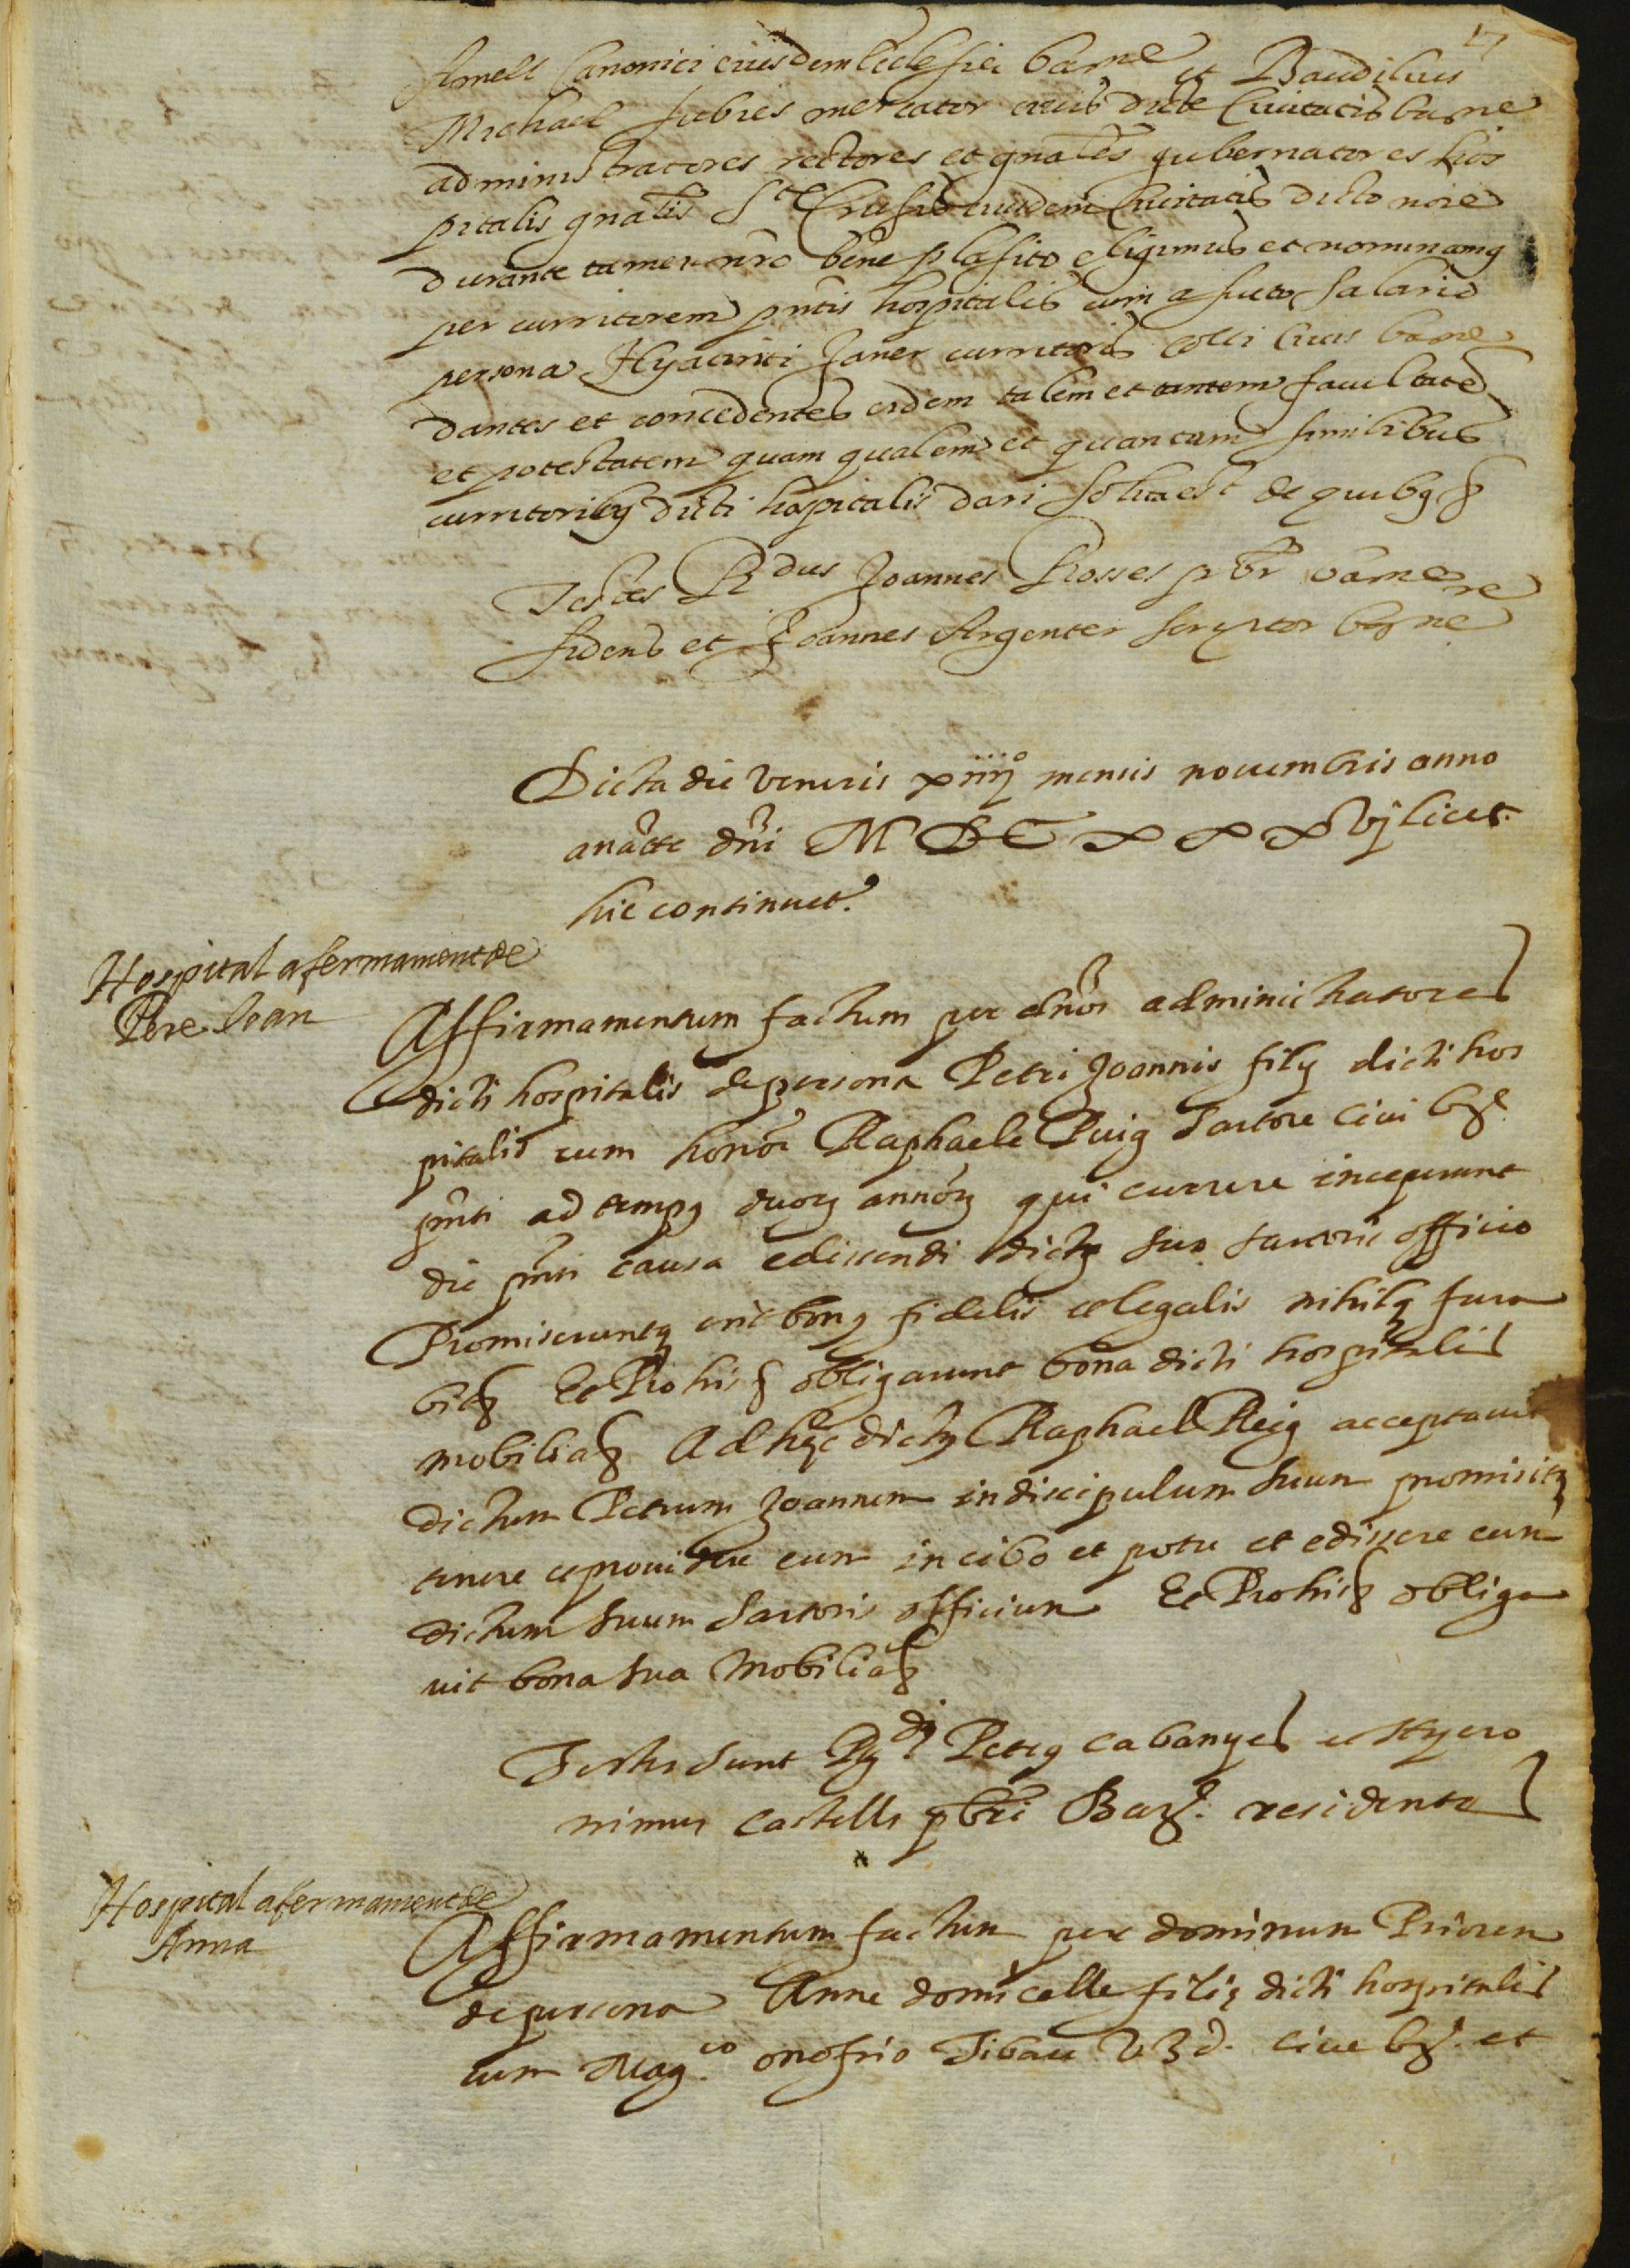 17
Amell Canonici eiusdem Ecclesiae barne et Baudilius
Michael Fabres mercator civis dicte Civitatis barne
administratores rectores et gnales gubernatores hos
pitalis gnalis Ste Crusis eiusdem Civitatis dicto noie
durante tamen nro bene plasito eligimus et nominamq
per curritorem pntis hospitalis cum asueto salario
persona Hyacinti Janer curritoris colli Civis barne
dantes et concedentes eidem talem et tantem facultate
et potestatem quam qualem et quantam similibus
curritoribq dicti hospitalis dari solita est de quibq &
Testes Rdus Joannes Rosses pbr barne re
sidens et Joannes Argenter scriptor barne
Dicta die veneris xiiijº mensis novembris anno
anacte dni MDCxxxvij licet
hic continuet.
Hospital afermament de
Pere Joan
Affirmamentum factum per dnos administratores
dicti hospitalis de persona Petri Joannis filij dicti hos
pitalis cum honor Raphaele Puig Sartore Civi bne
pnti ad tempq duorq annorq qui currere inceperunt
die pnti causa ediscendi dictq suo sartoris officio
Promiseruntq erit bonq fidelis et legalis nihilq fura
bit & Et Pro his & obligarunt bona dicti hospitalis
mobilia & Ad hec dictq Raphael Reig acceptavit
dictum Petrum Joannem in discipulum suum promisitq
tenere et providere eum in cibo et potu et edissere eum
dictum suum Sartoris officium Et Pro his & obliga
vit bona sua mobilia &
Testes sunt Rdi Petrq Cabanyes et Hyero
nimus Castells pbri Barne. residentes
Hospital afermament de
Anna
Affirmamentum factum per dominum Priorem
de persona Anne domicelle filie dicti hospitalis
cum Magco Onofrio Tibau V J d. Cive bne. et